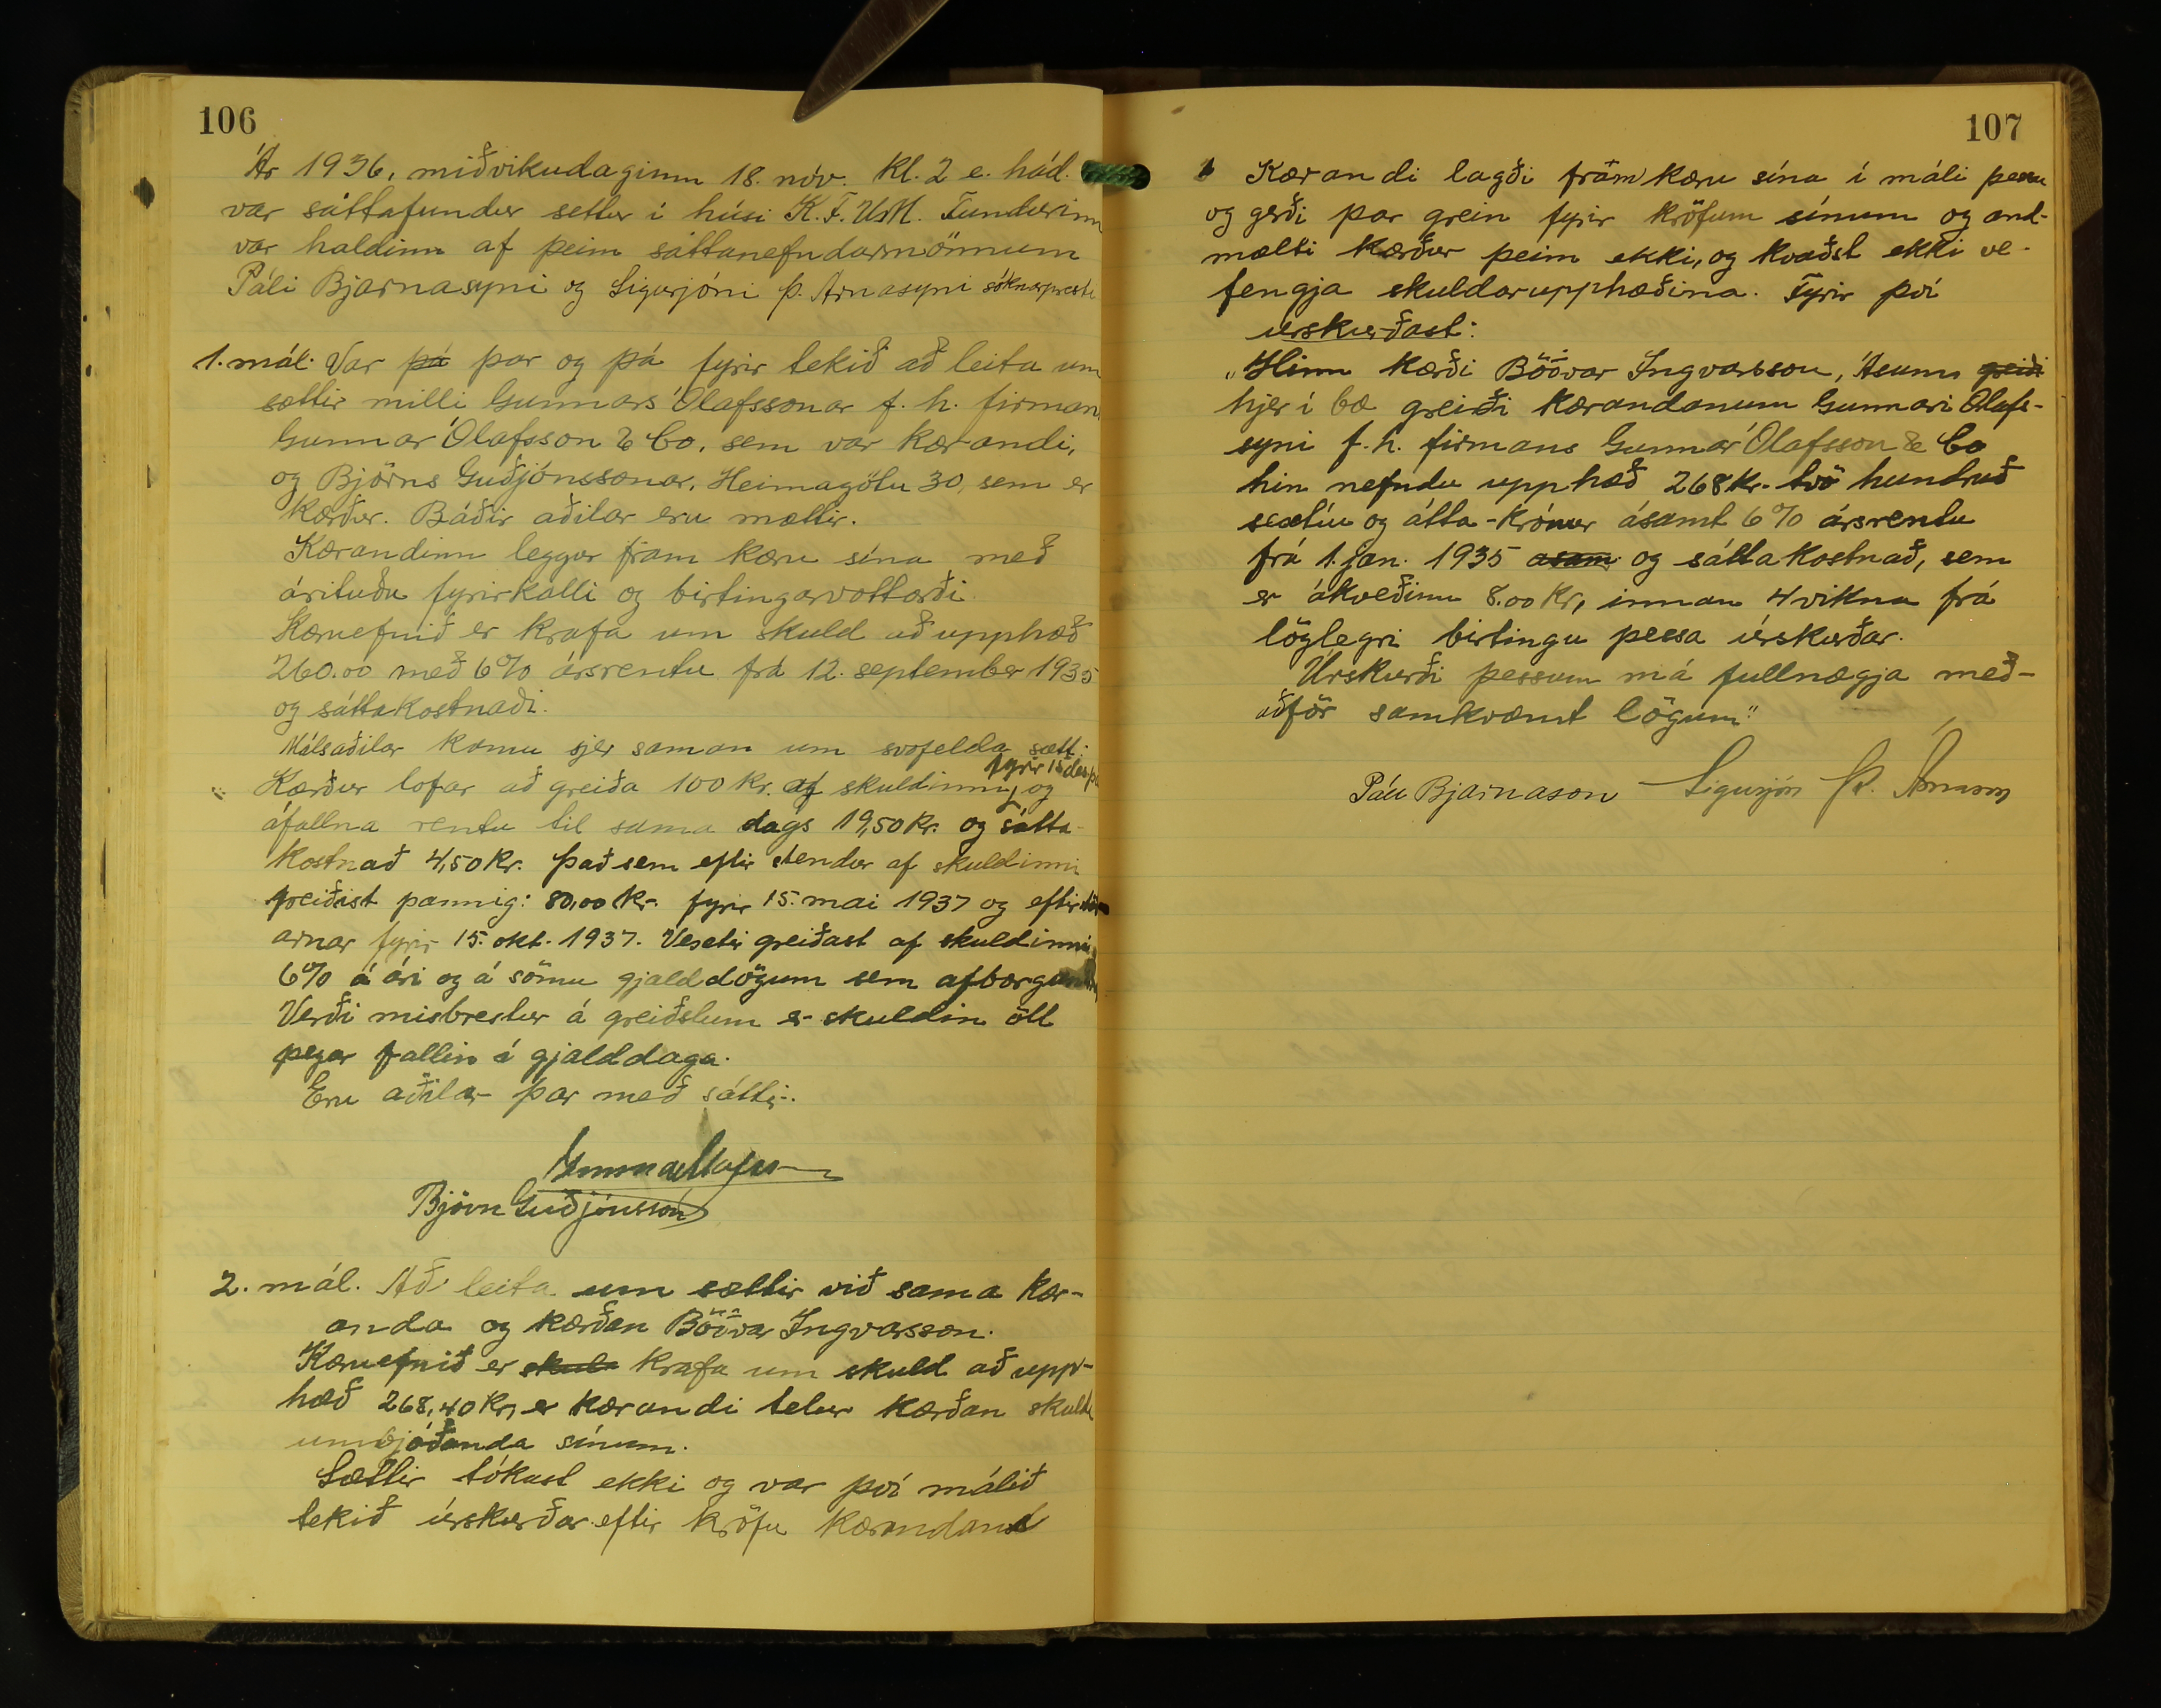 106
Ár 1936, miðvikudaginn 18. nóv. kl. 2 e. hád.
var sáttafundur settur í húsi K.F.U.M. Fundurinn
var haldinn af þeim sáttanefndarmönnum
Páli Bjarnasyni og Sigurjóni Þ. Árnasyni sóknarpresti
1. mál. Var þá þar og þá fyrir tekið að leita um
sættir milli Gunnars Ólafssonar f. h. firmans
Gunnar Ólafsson & Co. sem var kærandi,
og Björns Guðjónssonar, Heimagötu 30, sem er
kærður. Báðir aðilar eru mættir.
Kærandinn leggur fram kæru sína með
árituðu fyrirkalli og birtingarvottorði.
Kæruefnið er krafa um skuld að upphæð
260.00 með 6% ársrentu frá 12. september 1935
og sáttakostnaði.
Málsaðilar komu sjer saman um svofelda sætt:
Kærður lofar að greiða 100 kr. af skuldinni, og
fyrir 15 des. þ.
áfallna rentu til sama dags 19,50 kr. og sátta-
kostnað 4,50 kr. Það sem eftir stendur af skuldinni
greiðist þannig: 80,00 kr. fyrir 15. mai 1937 og eftirstöðv
arnar fyrir 15. okt. 1937. Vextir greiðast af skuldinni
6% á ári og á sömu gjalddögum sem afborganir
Verði misbrestur á greiðslum er skuldin öll
þegar fallin í gjalddaga.
Eru aðilar þar með sáttir.
Gunnar Ólafsson
Björn Guðjónsson
2. mál. Að leita um sættir við sama kær-
anda og kærðan Böðvar Ingvarsson.
Kæruefnið er skuld krafa um skuld að upp-
hæð 268,40 kr, er kærandi telur kærðan skulda
umbjóðanda sínum.
Sættir tókust ekki og var því málið
tekið úrskurðar eftir kröfu kærandans
107
Kærandi lagði fram kæru sína í máli þessu
og gerði þar grein fyrir kröfum sínum og and-
mælti kærður þeim ekki, og kvaðst ekki ve-
fengja skuldarupphæðina. Fyrir því
úrskurðast:
„Hinn kærði Böðvar Ingvarsson, Ásum greiði
hjer í bæ greiði kærandanum Gunnari Ólafs-
syni f. h. firmans Gunnar Ólafsson & Co
hin nefndu upphæð 268 kr. tvö hundruð
sextíu og átta - krónur ásamt 6% ársrentu
frá 1. jan. 1935 asam og sáttakostnað, sem
er ákveðinn 8.00 kr, innan 4 vikna frá
löglegri birtingu þessa úrskurðar.
Úrskurði þessum má fullnægja með-
aðför samkvæmt lögum"
Páll Bjarnason Sigurjón Þ. Árnason